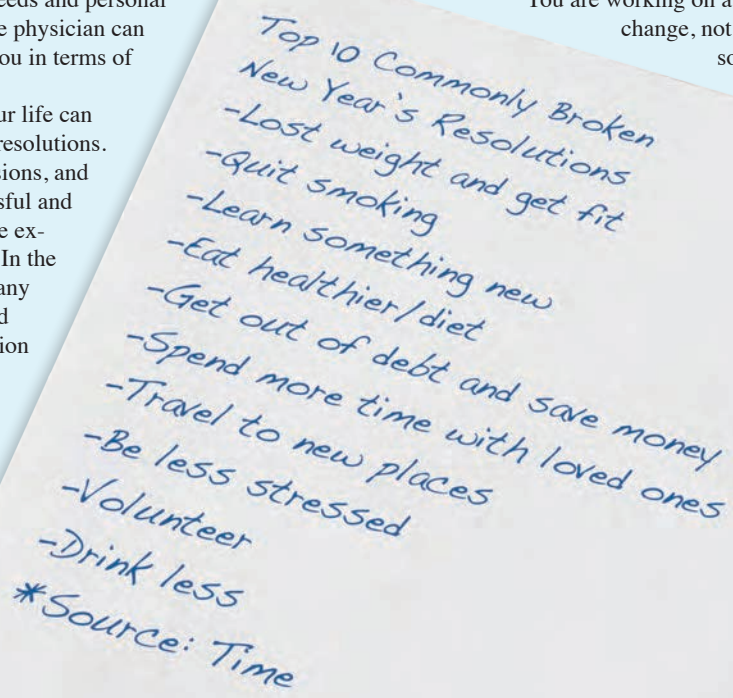 eeds and personal
e physician can
ou in terms of
ur life can
resolutions.
sions, and
sful and
e ex-
In the
any
d
ion
You are working on a
change, not
so
Top 10 Commonly Broken
New Year's Resolutions
-Lost weight and get fit
-Quit smoking
-Learn something new
-Eat healthier/diet
-Get out of debt and save money
-Spend more time with loved ones
-Travel to new places
-Be less stressed
-Volunteer
-Drink less
*Source: Time